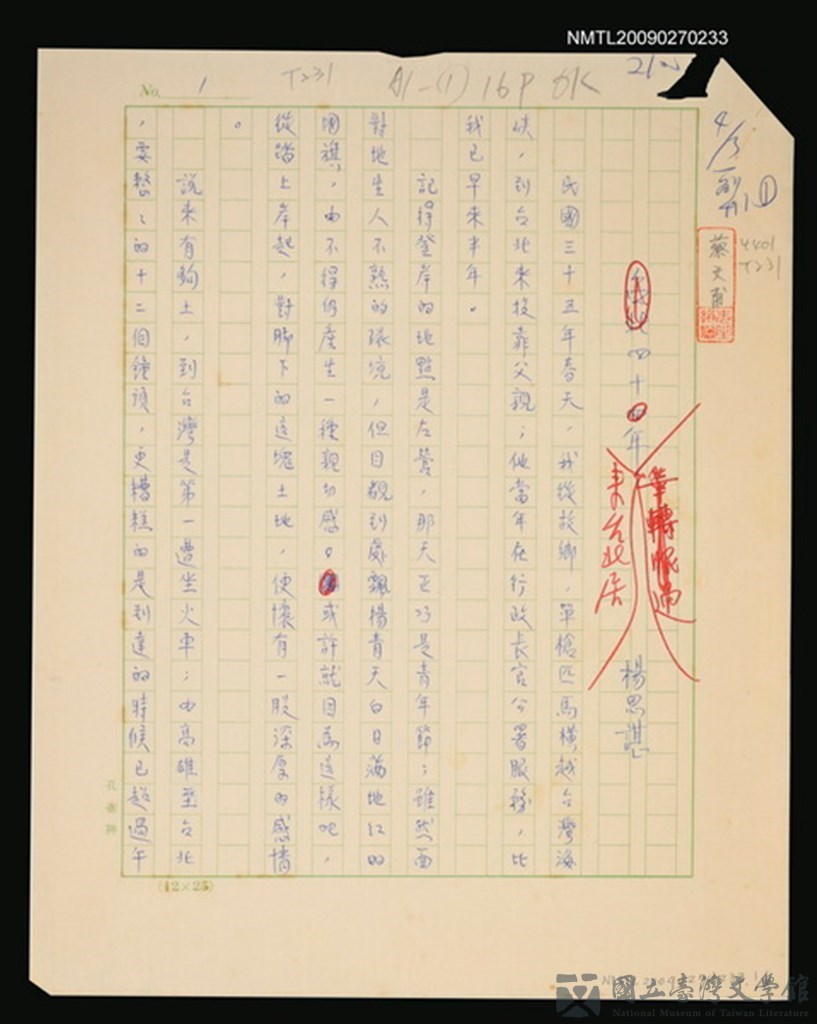 NMTL20090270233
No. 1
T231
A1-(1) 16P OK
4401
T231
蔡文甫
四十四年
筆轉眼過
東台北居
楊思諶
民國三十五年春天，我從故鄉，單槍匹馬橫越台灣海
峽，到台北來投靠父親；他當年在行政長官公署服務，比
我已早來半年。
記得登岸的地點是左營，那天正巧是青年節；雖然面
對地生人不熟的環境，但目觀到處飄楊青天白日滿地紅的
國旗，由不得仍產生一種親切感。或許就因為這樣吧，
從踏上岸起，對腳下的這塊土地，便懷有一股深厚的感情
。
說來有夠土，到台灣是第一遭坐火車；由高雄至台北
，要整整的十二個鐘頭，更糟糕的是到達的時候已超過午
孔雀牌
(12×25)
國立臺灣文學館
National Museum of Taiwan Literature